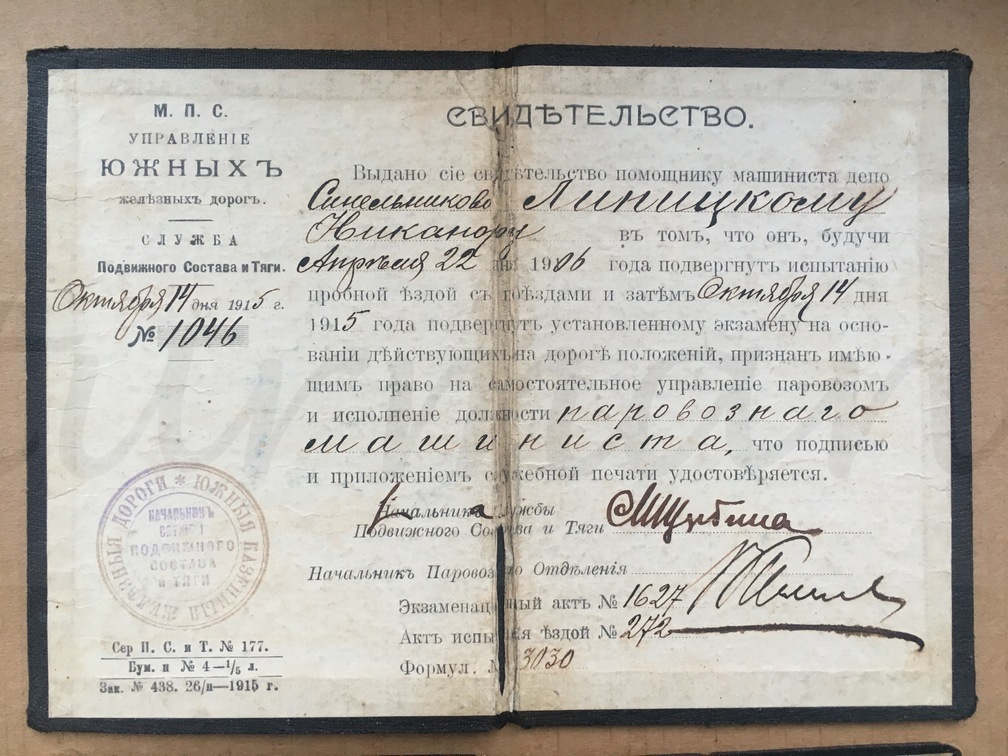 М. П. С.
УПРАВЛЕНІЕ
ЮЖНЫХЪ
желѣзныхъ дорогъ.
СЛУЖБА
Подвижного Состава и Тяги.
Октября 14 дня 1915 г.
№ 1046
СВИДѢТЕЛЬСТВО.
Выдано сіе свидѣтельство помощнику машиниста депо
Синельниково Липицкому
Никанору въ томъ, что онъ, будучи
Апрѣля 22 дня 1906 года подвергнутъ испытанію
пробной ѣздой съ поѣздами и затѣмъ Октября 14 дня
1915 года подвергнутъ установленному экзамену на осно-
ваніи дѣйствующихъ на дорогѣ положеній, признанъ имѣю-
щимъ право на самостоятельное управленіе паровозомъ
и исполненіе должности паровознаго
машиниста, что подписью
и приложеніемъ служебной печати удостовѣряется.
Начальника Службы
Подвижного Состава и Тяги
Начальникъ Паровозного Отдѣленія
Экзаменаціонный актъ № 1627
Актъ испытанія ѣздой № 272
Формул. № 3030
ЮЖНЫЯ КАЗЕННЫЯ ЖЕЛѢЗНЫЯ ДОРОГИ *
НАЧАЛЬНИКЪ
СЛУЖБЫ
ПОДВИЖНОГО
СОСТАВА
и ТЯГИ
Сер П. С. и Т. № 177.
Бум. п № 4—1/5 л.
Зак. № 438. 26/II—1915 г.